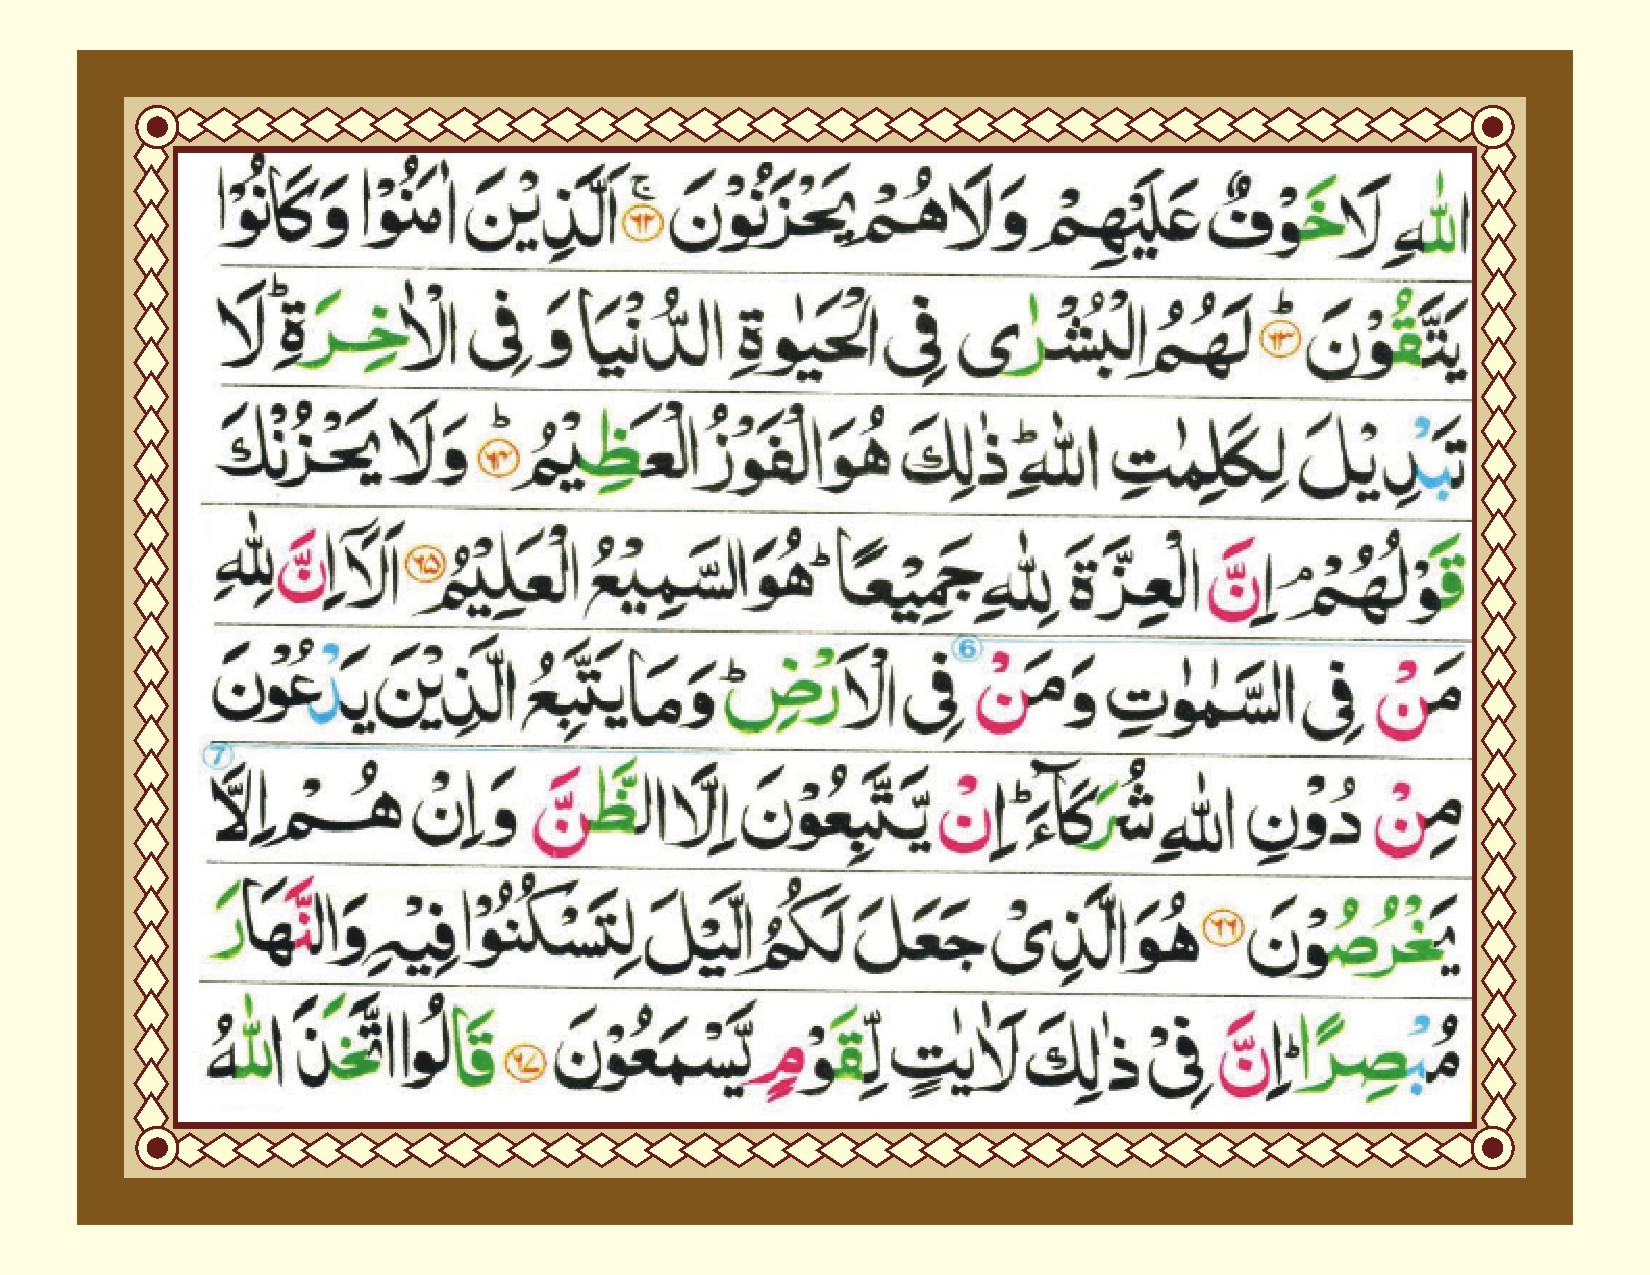 اللّٰهِ لَا خَوْفٌ عَلَيْهِمْ وَلَا هُمْ يَحْزَنُوْنَ ۚ﴿۶۲﴾ اَلَّذِيْنَ اٰمَنُوْا وَكَانُوْا
يَتَّقُوْنَ ؕ﴿۶۳﴾ لَهُمُ الْبُشْرٰى فِى الْحَيٰوةِ الدُّنْيَا وَ فِى الْاٰخِرَةِ ؕ لَا
تَبْدِيْلَ لِكَلِمٰتِ اللّٰهِ ؕ ذٰلِكَ هُوَ الْفَوْزُ الْعَظِيْمُ ؕ﴿۶۴﴾ وَلَا يَحْزُنْكَ
قَوْلُهُمْ ۘ اِنَّ الْعِزَّةَ لِلّٰهِ جَمِيْعًا ؕ هُوَ السَّمِيْعُ الْعَلِيْمُ ﴿۶۵﴾ اَلَاۤ اِنَّ لِلّٰهِ
مَنْ فِى السَّمٰوٰتِ وَمَنْ فِى الْاَرْضِ ؕ وَمَا يَتَّبِعُ الَّذِيْنَ يَدْعُوْنَ
6
مِنْ دُوْنِ اللّٰهِ شُرَكَآءَ ؕ اِنْ يَّتَّبِعُوْنَ اِلَّا الظَّنَّ وَاِنْ هُمْ اِلَّا
7
يَخْرُصُوْنَ ﴿۶۶﴾ هُوَ الَّذِىْ جَعَلَ لَكُمُ الَّيْلَ لِتَسْكُنُوْا فِيْهِ وَالنَّهَارَ
مُبْصِرًا ؕ اِنَّ فِىْ ذٰلِكَ لَاٰيٰتٍ لِّقَوْمٍ يَّسْمَعُوْنَ ﴿۶۷﴾ قَالُوا اتَّخَذَ اللّٰهُ